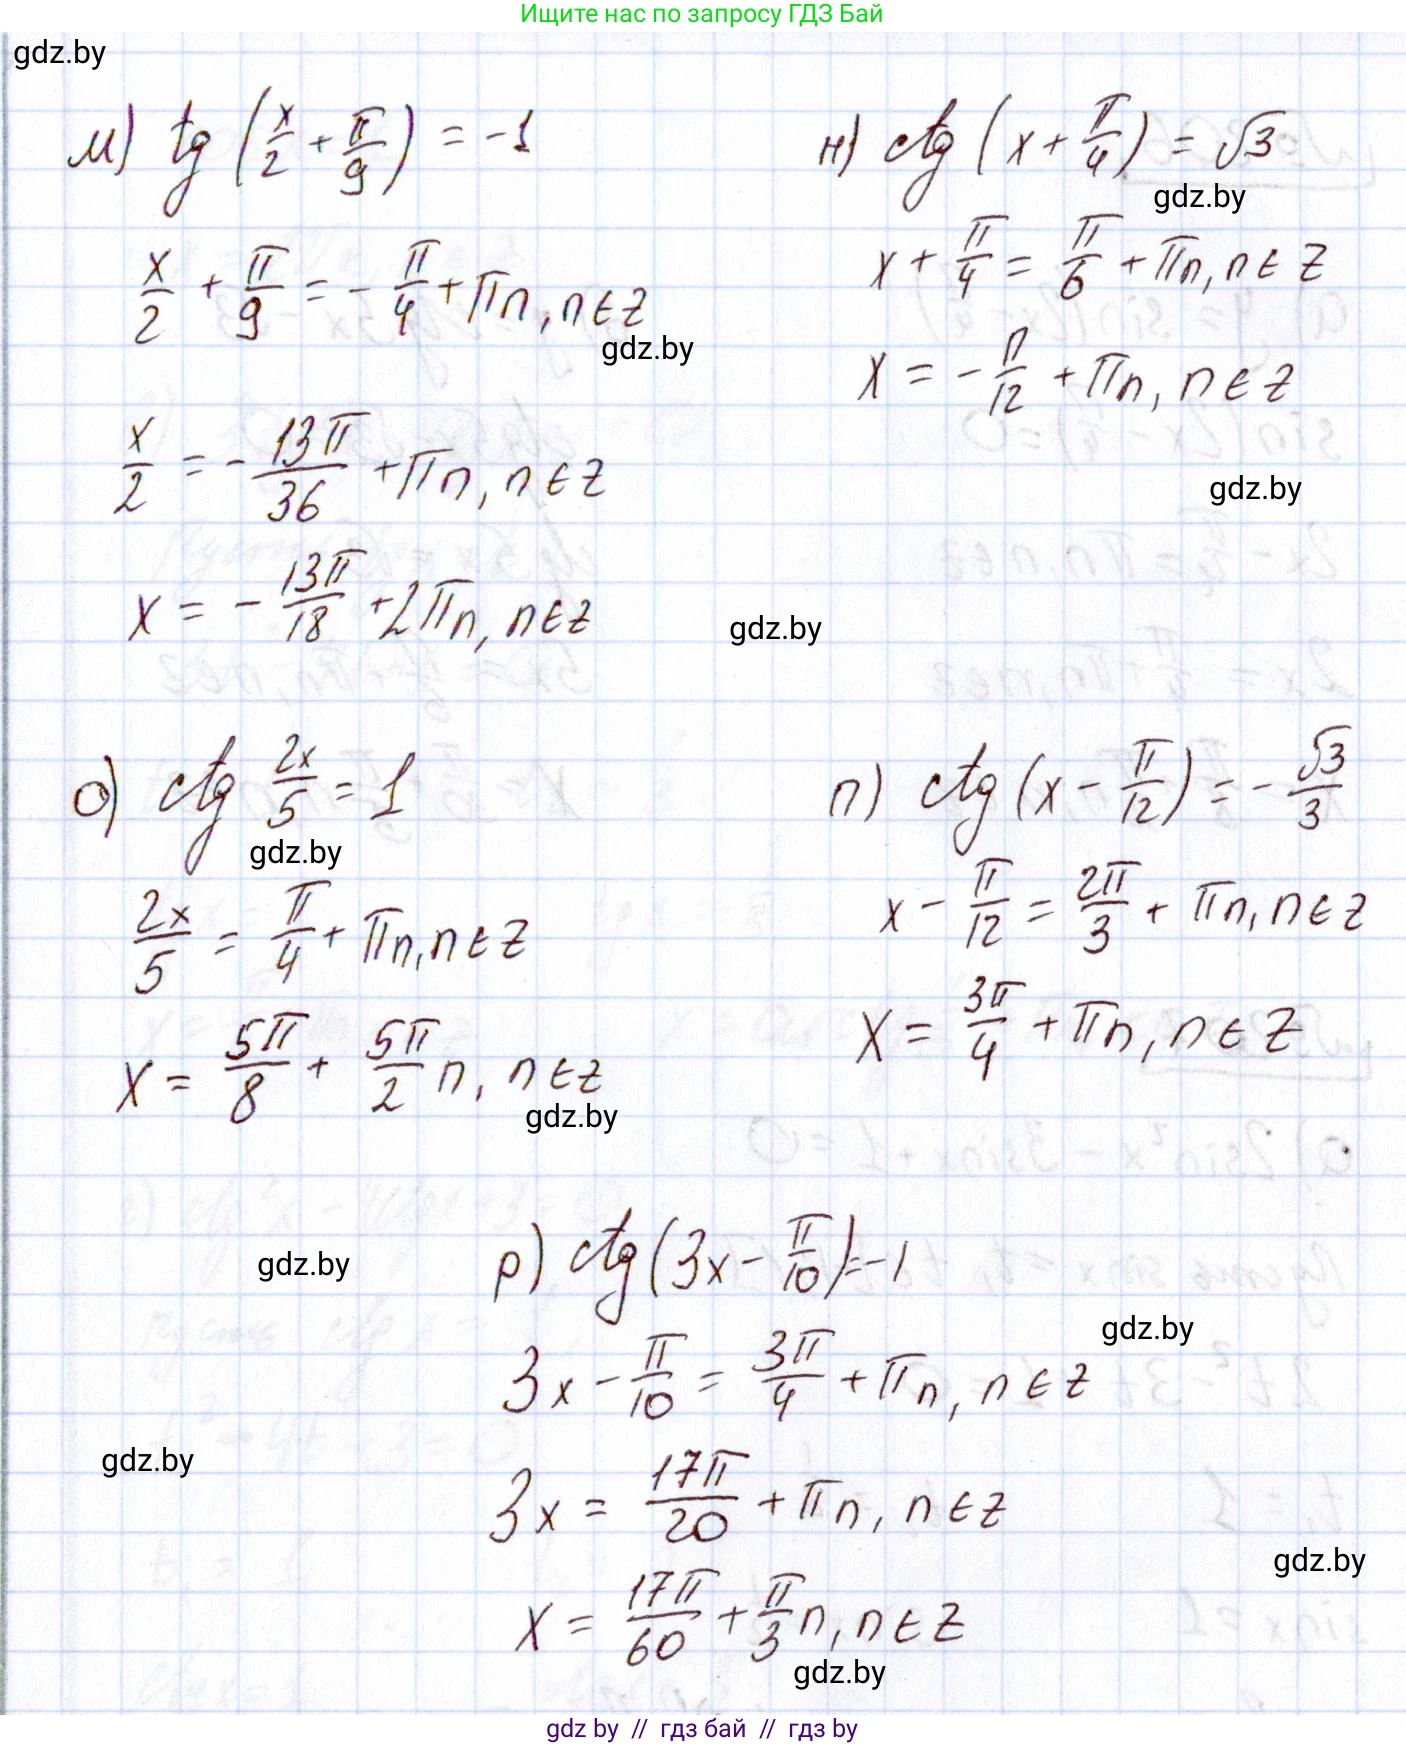 Ищите нас по запросу ГДЗ Бай
gdz.by
м) tg (x/2 + π/9) = -1
x/2 + π/9 = - π/4 + πn, n∈Z
gdz.by
x/2 = - 13π/36 + πn, n∈Z
x = - 13π/18 + 2πn, n∈Z
н) ctg (x + π/4) = √3
gdz.by
x + π/4 = π/6 + πn, n∈Z
x = - π/12 + πn, n∈Z
gdz.by
gdz.by
о) ctg 2x/5 = 1
gdz.by
2x/5 = π/4 + πn, n∈Z
x = 5π/8 + 5π/2 n, n∈Z
gdz.by
п) ctg (x - π/12) = - √3/3
x - π/12 = 2π/3 + πn, n∈Z
x = 3π/4 + πn, n∈Z
gdz.by
р) ctg (3x - π/10) = -1
gdz.by
3x - π/10 = 3π/4 + πn, n∈Z
gdz.by
3x = 17π/20 + πn, n∈Z
gdz.by
x = 17π/60 + π/3 n, n∈Z
gdz.by
gdz by // гдз бай // гдз by